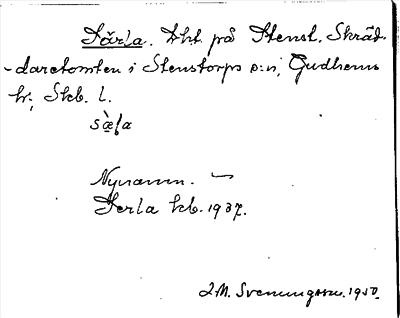 Särla. Tht. på Stensl. Skräd-
-daretomten i Stenstorps s:n, Gudhems
h:, Skb. l.
sæ̀ɭa
Nynamn. —
Serla kb. 1937.
L.M. Svenungsson. 1950.